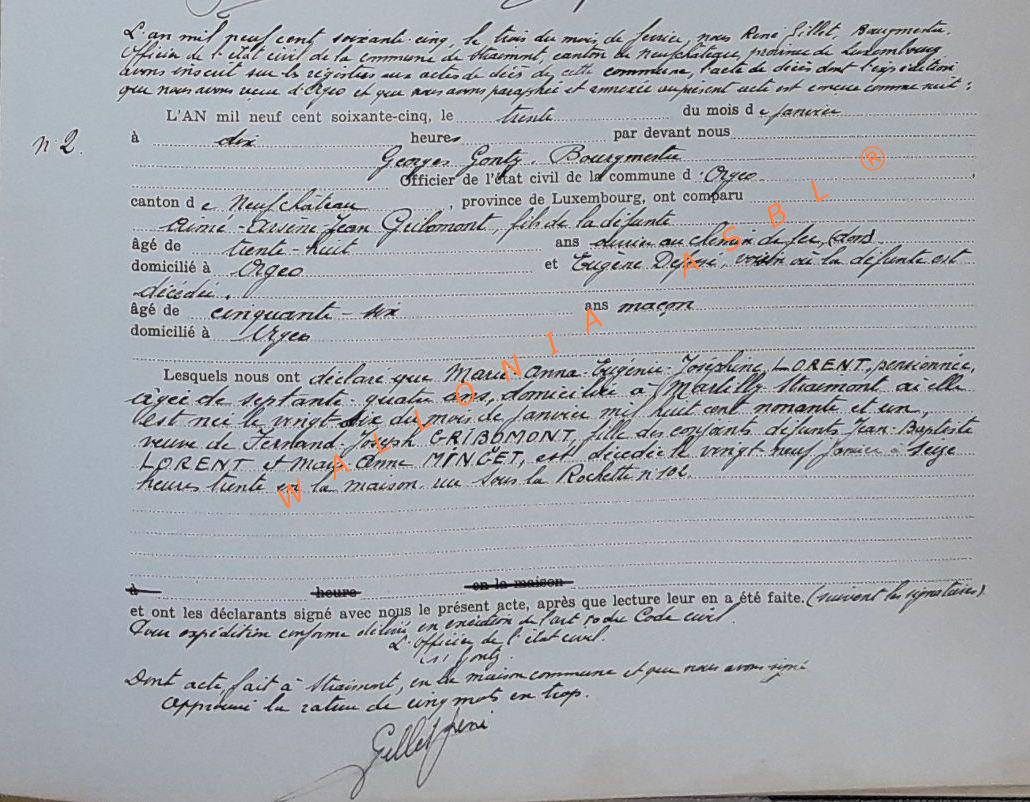 L'an mil neuf cent soixante-cinq, le trois du mois de février, nous René Gillet, Bourgmestre
Officier de l'état civil de la commune de Straimont, canton de Neufchâteau, province de Luxembourg,
avons inscrit sur les registres aux actes de décès de cette commune, l'acte de décès dont l'expédition
que nous avons reçue d'Orgeo et que nous avons paraphée et annexée au présent acte est conçue comme suit :
L'AN mil neuf cent soixante-cinq, le trente du mois de janvier
n 2. à dix heures par devant nous
Georges Gontz. Bourgmestre
Officier de l'état civil de la commune d'Orgeo,
canton de Neufchâteau, province de Luxembourg, ont comparu
Aimé-Arsène Jean Gribomont, fils de la défunte
âgé de trente-huit ans ouvrier au chemin de fer,
domicilié à Orgeo et Eugène voisin où la défunte est
décédée.
âgé de cinquante-six ans maçon
domicilié à Orgeo
Lesquels nous ont déclaré que Marie-Anna-Eugénie-Joséphine LORENT, pensionnée,
âgée de septante-quatre ans, domiciliée à Martilly-Straimont où elle
est née le vingt-dix du mois de janvier mil huit cent nonante et un,
veuve de Fernand-Joseph GRIBOMONT, fille des conjoints défunts Jean-Baptiste
LORENT et Marie-Anne MINGET, est décédée le vingt-neuf janvier à seize
heures trente en la maison, rue sous la Rochette n 102.
à heure en la maison
et ont les déclarants signé avec nous le présent acte, après que lecture leur en a été faite. (suivent les signatures)
Pour expédition conforme délivrée en exécution de l'art 80 du Code civil.
L'Officier de l'état civil.
(s) Gontz
Dont acte, fait à Straimont, en la maison commune et que nous avons signé
Approuvé la rature de cinq mots en trop.
Gillet René
WALLONIA ASBL ®